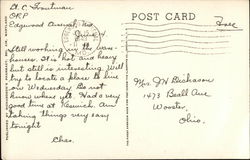 A. C. Troutman
O.R.P
Edgewood Arsenal, Md.
June
Still working in the ware
houses. It is hot and heavy
but still is interesting. Will
try to locate a place to live
on Wednesday. Do not
know where yet. Had a very
good time at Keswick. Am
taking things very easy
tonight
Chas.
POST CARD
Free
Mrs. J N Dickason
1473 Beall Ave
Wooster,
Ohio.